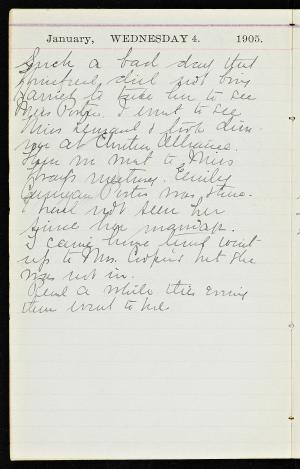 January, WEDNESDAY 4. 1905.
Such a bad day that
did not bring
Harriet to take her to see
Miss Porter. I went to see
Miss & took din-
ner at Christian Alliance.
Then we went to Miss
meeting. Emily
Porter was there.
I had not seen her
since her marriage.
I came home and went
up to Mrs. Cooper's but she
was not in.
Read a while this Evening
then went to bed.